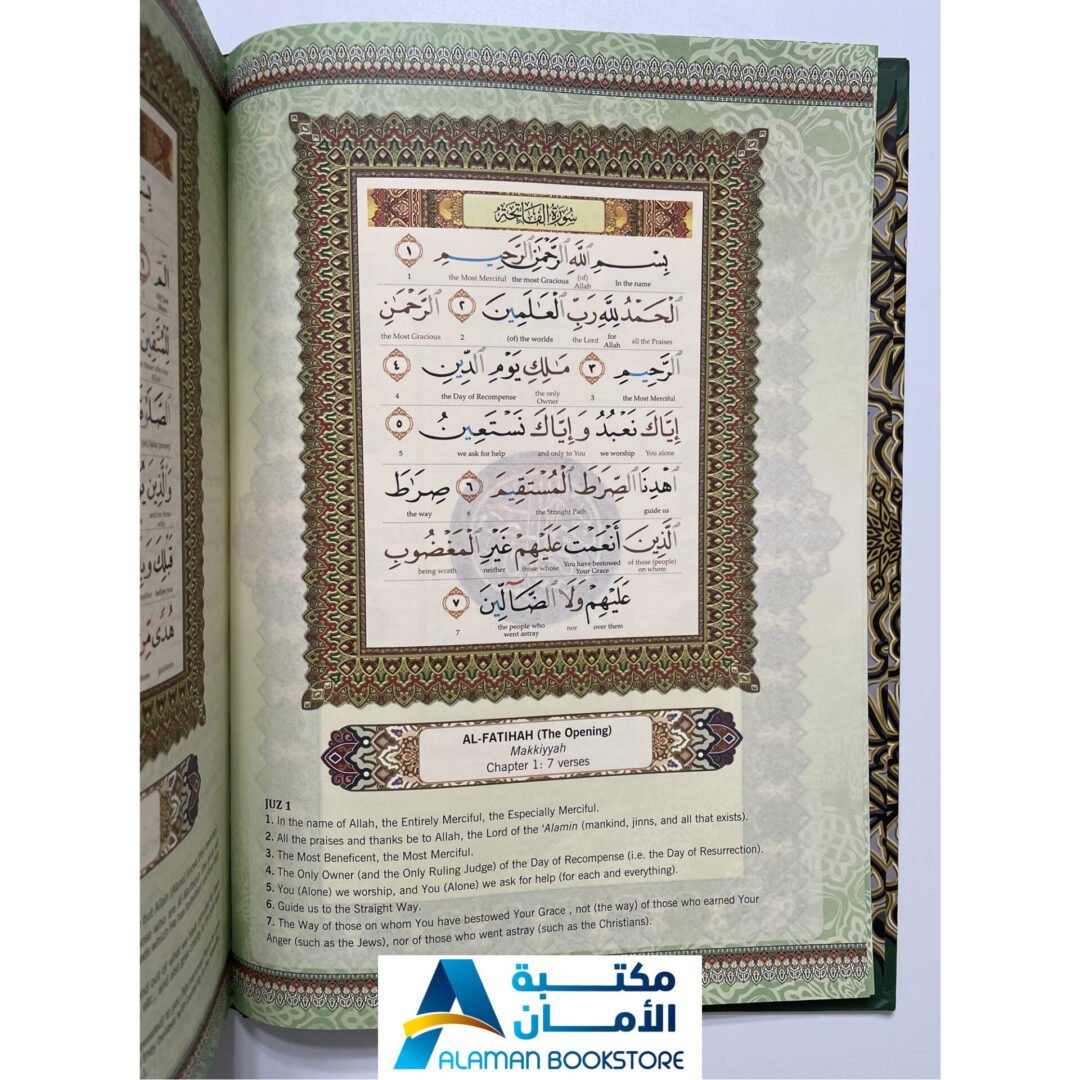 سُورَةُ الْفَاتِحَةِ
بِسْمِ ٱللَّهِ ٱلرَّحْمَٰنِ ٱلرَّحِيمِ ١
In the name (of) Allah the most Gracious the Most Merciful 1
ٱلْحَمْدُ لِلَّهِ رَبِّ ٱلْعَٰلَمِينَ ٢ ٱلرَّحْمَٰنِ
all the Praises for Allah the Lord (of) the worlds 2 the Most Gracious
ٱلرَّحِيمِ ٣ مَٰلِكِ يَوْمِ ٱلدِّينِ ٤
the Most Merciful 3 the only Owner the Day of Recompense 4
إِيَّاكَ نَعْبُدُ وَإِيَّاكَ نَسْتَعِينُ ٥
You alone we worship and only to You we ask for help 5
ٱهْدِنَا ٱلصِّرَٰطَ ٱلْمُسْتَقِيمَ ٦ صِرَٰطَ
guide us the Straight Path 6 the way
ٱلَّذِينَ أَنْعَمْتَ عَلَيْهِمْ غَيْرِ ٱلْمَغْضُوبِ
of those (people) on whom You have bestowed Your Grace those whose neither being wrath
عَلَيْهِمْ وَلَا ٱلضَّآلِّينَ ٧
over them nor the people who went astray 7
AL-FATIHAH (The Opening)
Makkiyyah
Chapter 1: 7 verses
JUZ 1
1. In the name of Allah, the Entirely Merciful, the Especially Merciful.
2. All the praises and thanks be to Allah, the Lord of the 'Alamin (mankind, jinns, and all that exists).
3. The Most Beneficent, the Most Merciful.
4. The Only Owner (and the Only Ruling Judge) of the Day of Recompense (i.e. the Day of Resurrection).
5. You (Alone) we worship, and You (Alone) we ask for help (for each and everything).
6. Guide us to the Straight Way.
7. The Way of those on whom You have bestowed Your Grace , not (the way) of those who earned Your
Anger (such as the Jews), nor of those who went astray (such as the Christians).
مكتبة
الأمان
ALAMAN BOOKSTORE